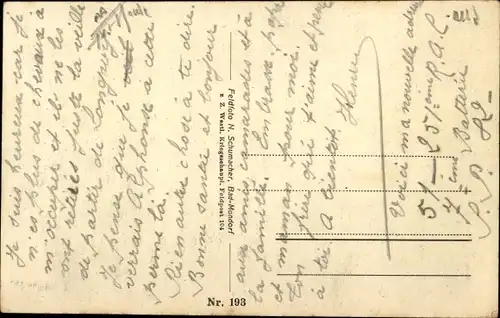 Je suis heureux car je
n'ai plus de chevaux à
m'occuper et b
ont retirés juste la veille
de partir de Longuyon
Je pense que je
verrais Alphonse à cette
perme là.
Rien autre chose à te dire.
Bonne santé et bonjour
aux amis camarades et à
la famille. Embrasse papa
et maman pour moi.
Ton frère qui t'aime et pense
à toi. A bientôt Henri
Feldfoto N. Schumacher, Bad-Mondorf
z. Z. Westl. Kriegsschaupl. Feldpost 104
Voici ma nouvelle adresse
51 — 257ème R.A.C.
7ème Batterie
S.P. 
Nr. 193